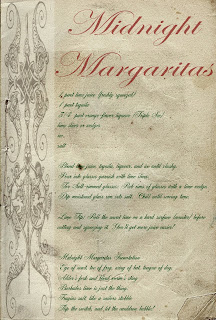 Midnight
Margaritas
1 part lime juice (freshly squeezed)
1 part tequila
3/4 part orange flavor liqueur (Triple Sec)
lime slices or wedges
ice
salt
Blend lime juice, tequila, liqueur, and ice until slushy.
Pour into glasses garnish with lime slices.
For Salt-rimmed glasses: Rub rims of glasses with a lime wedge.
Dip moistened glass rim into salt. Chill until serving time.
Lime Tip: Roll the uncut lime on a hard surface (counter) before
cutting and squeezing it. You'll get more juice easier!
Midnight Margaritas Incantation
Eye of newt, toe of frog, wing of bat, tongue of dog,
Adder's fork and blind worm's sting
Barbados lime is just the thing,
Cragged salt like a sailors stubble
Flip the switch, and let the cauldron bubble!